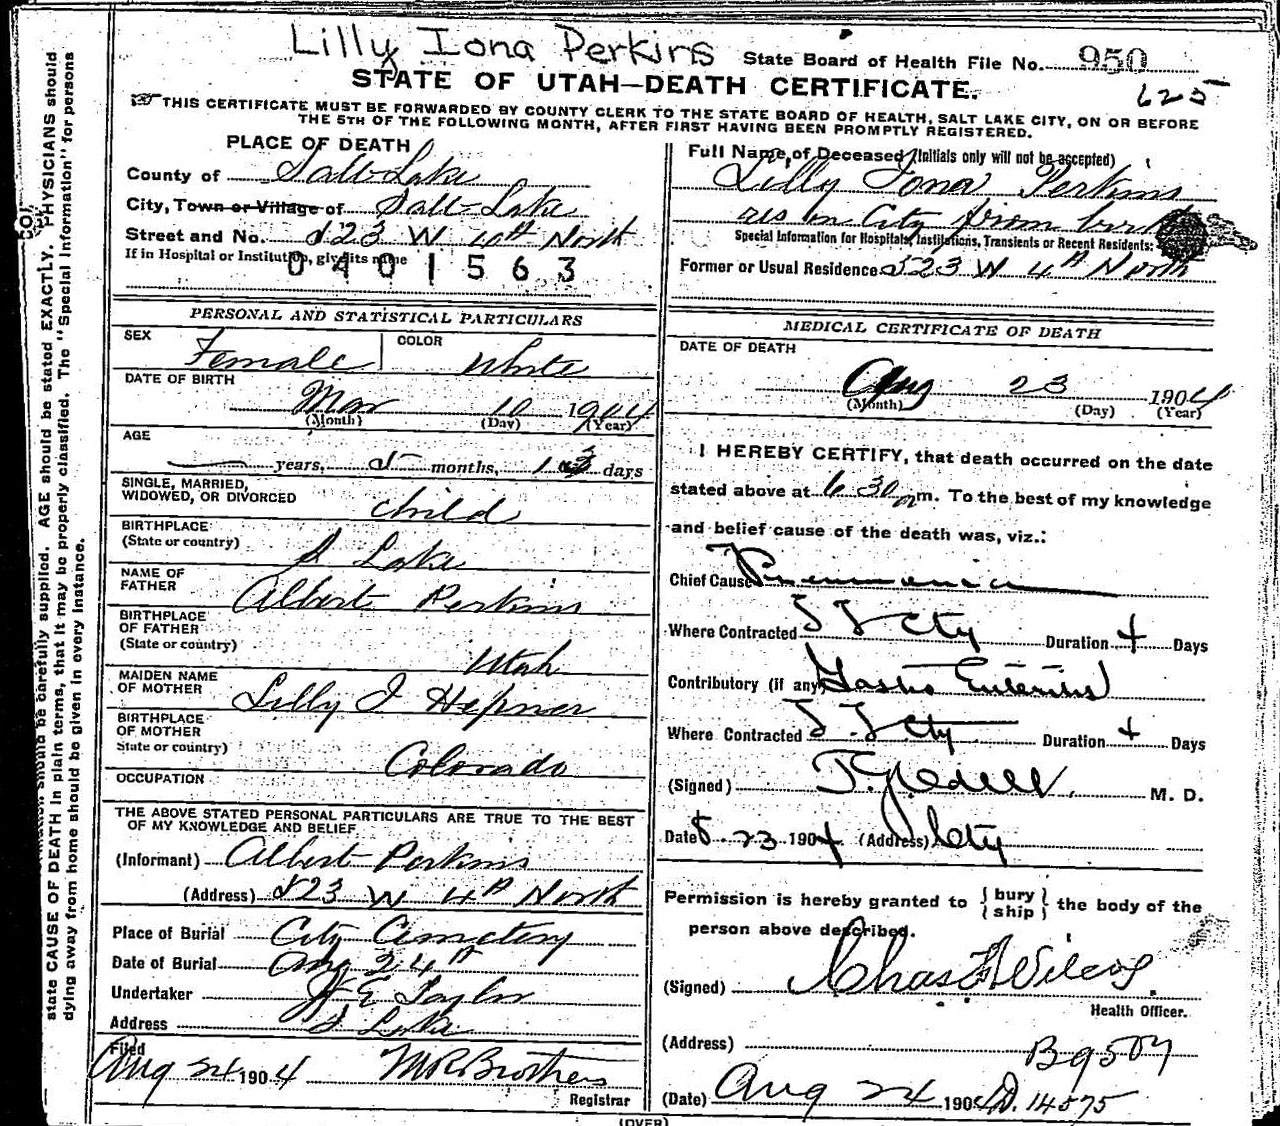 Lilly Iona Perkins
State Board of Health File No. 950
STATE OF UTAH—DEATH CERTIFICATE.
625
THIS CERTIFICATE MUST BE FORWARDED BY COUNTY CLERK TO THE STATE BOARD OF HEALTH, SALT LAKE CITY, ON OR BEFORE
THE 5TH OF THE FOLLOWING MONTH, AFTER FIRST HAVING BEEN PROMPTLY REGISTERED.
PLACE OF DEATH
County of Salt Lake
City, Town or Village of Salt Lake
Street and No. 523 W 4th North
If in Hospital or Institution, give its name
0401563
Full Name of Deceased (Initials only will not be accepted)
Lilly Iona Perkins
res in City from birth
Special Information for Hospitals, Institutions, Transients or Recent Residents:
Former or Usual Residence 523 W 4th North
PERSONAL AND STATISTICAL PARTICULARS
SEX Female COLOR White
DATE OF BIRTH
Mar 10 1904
(Month) (Day) (Year)
AGE
years, 5 months, 13 days
SINGLE, MARRIED,
WIDOWED, OR DIVORCED child
BIRTHPLACE
(State or country) S Lake
NAME OF
FATHER Albert Perkins
BIRTHPLACE
OF FATHER
(State or country) Utah
MAIDEN NAME
OF MOTHER Lilly I Hepner
BIRTHPLACE
OF MOTHER
State or country) Colorado
OCCUPATION
THE ABOVE STATED PERSONAL PARTICULARS ARE TRUE TO THE BEST
OF MY KNOWLEDGE AND BELIEF
(Informant) Albert Perkins
(Address) 523 W 4th North
Place of Burial City Cemetery
Date of Burial Aug 24th
Undertaker E Taylor
Address S Lake
Filed
Aug 24 1904 Brothers
Registrar
MEDICAL CERTIFICATE OF DEATH
DATE OF DEATH
Aug 23 1904
(Month) (Day) (Year)
I HEREBY CERTIFY, that death occurred on the date
stated above at 6 30 m. To the best of my knowledge
and belief cause of the death was, viz.:
Chief Cause Pneumonia
Where Contracted S L City Duration 4 Days
Contributory (if any) Gastro Enteritis
Where Contracted S. L City Duration 4 Days
(Signed) M. D.
Date 8-23-1904 (Address) City
Permission is hereby granted to { bury
ship } the body of the
person above described.
(Signed) Chas Wilcox.
Health Officer.
(Address) B9507
(Date) Aug 24 1904 D. 14575
(OVER)
state CAUSE OF DEATH in plain terms, that it may be properly classified. The "Special Information" for persons
dying away from home should be given in every instance.
should be carefully supplied. AGE should be stated EXACTLY. PHYSICIANS should